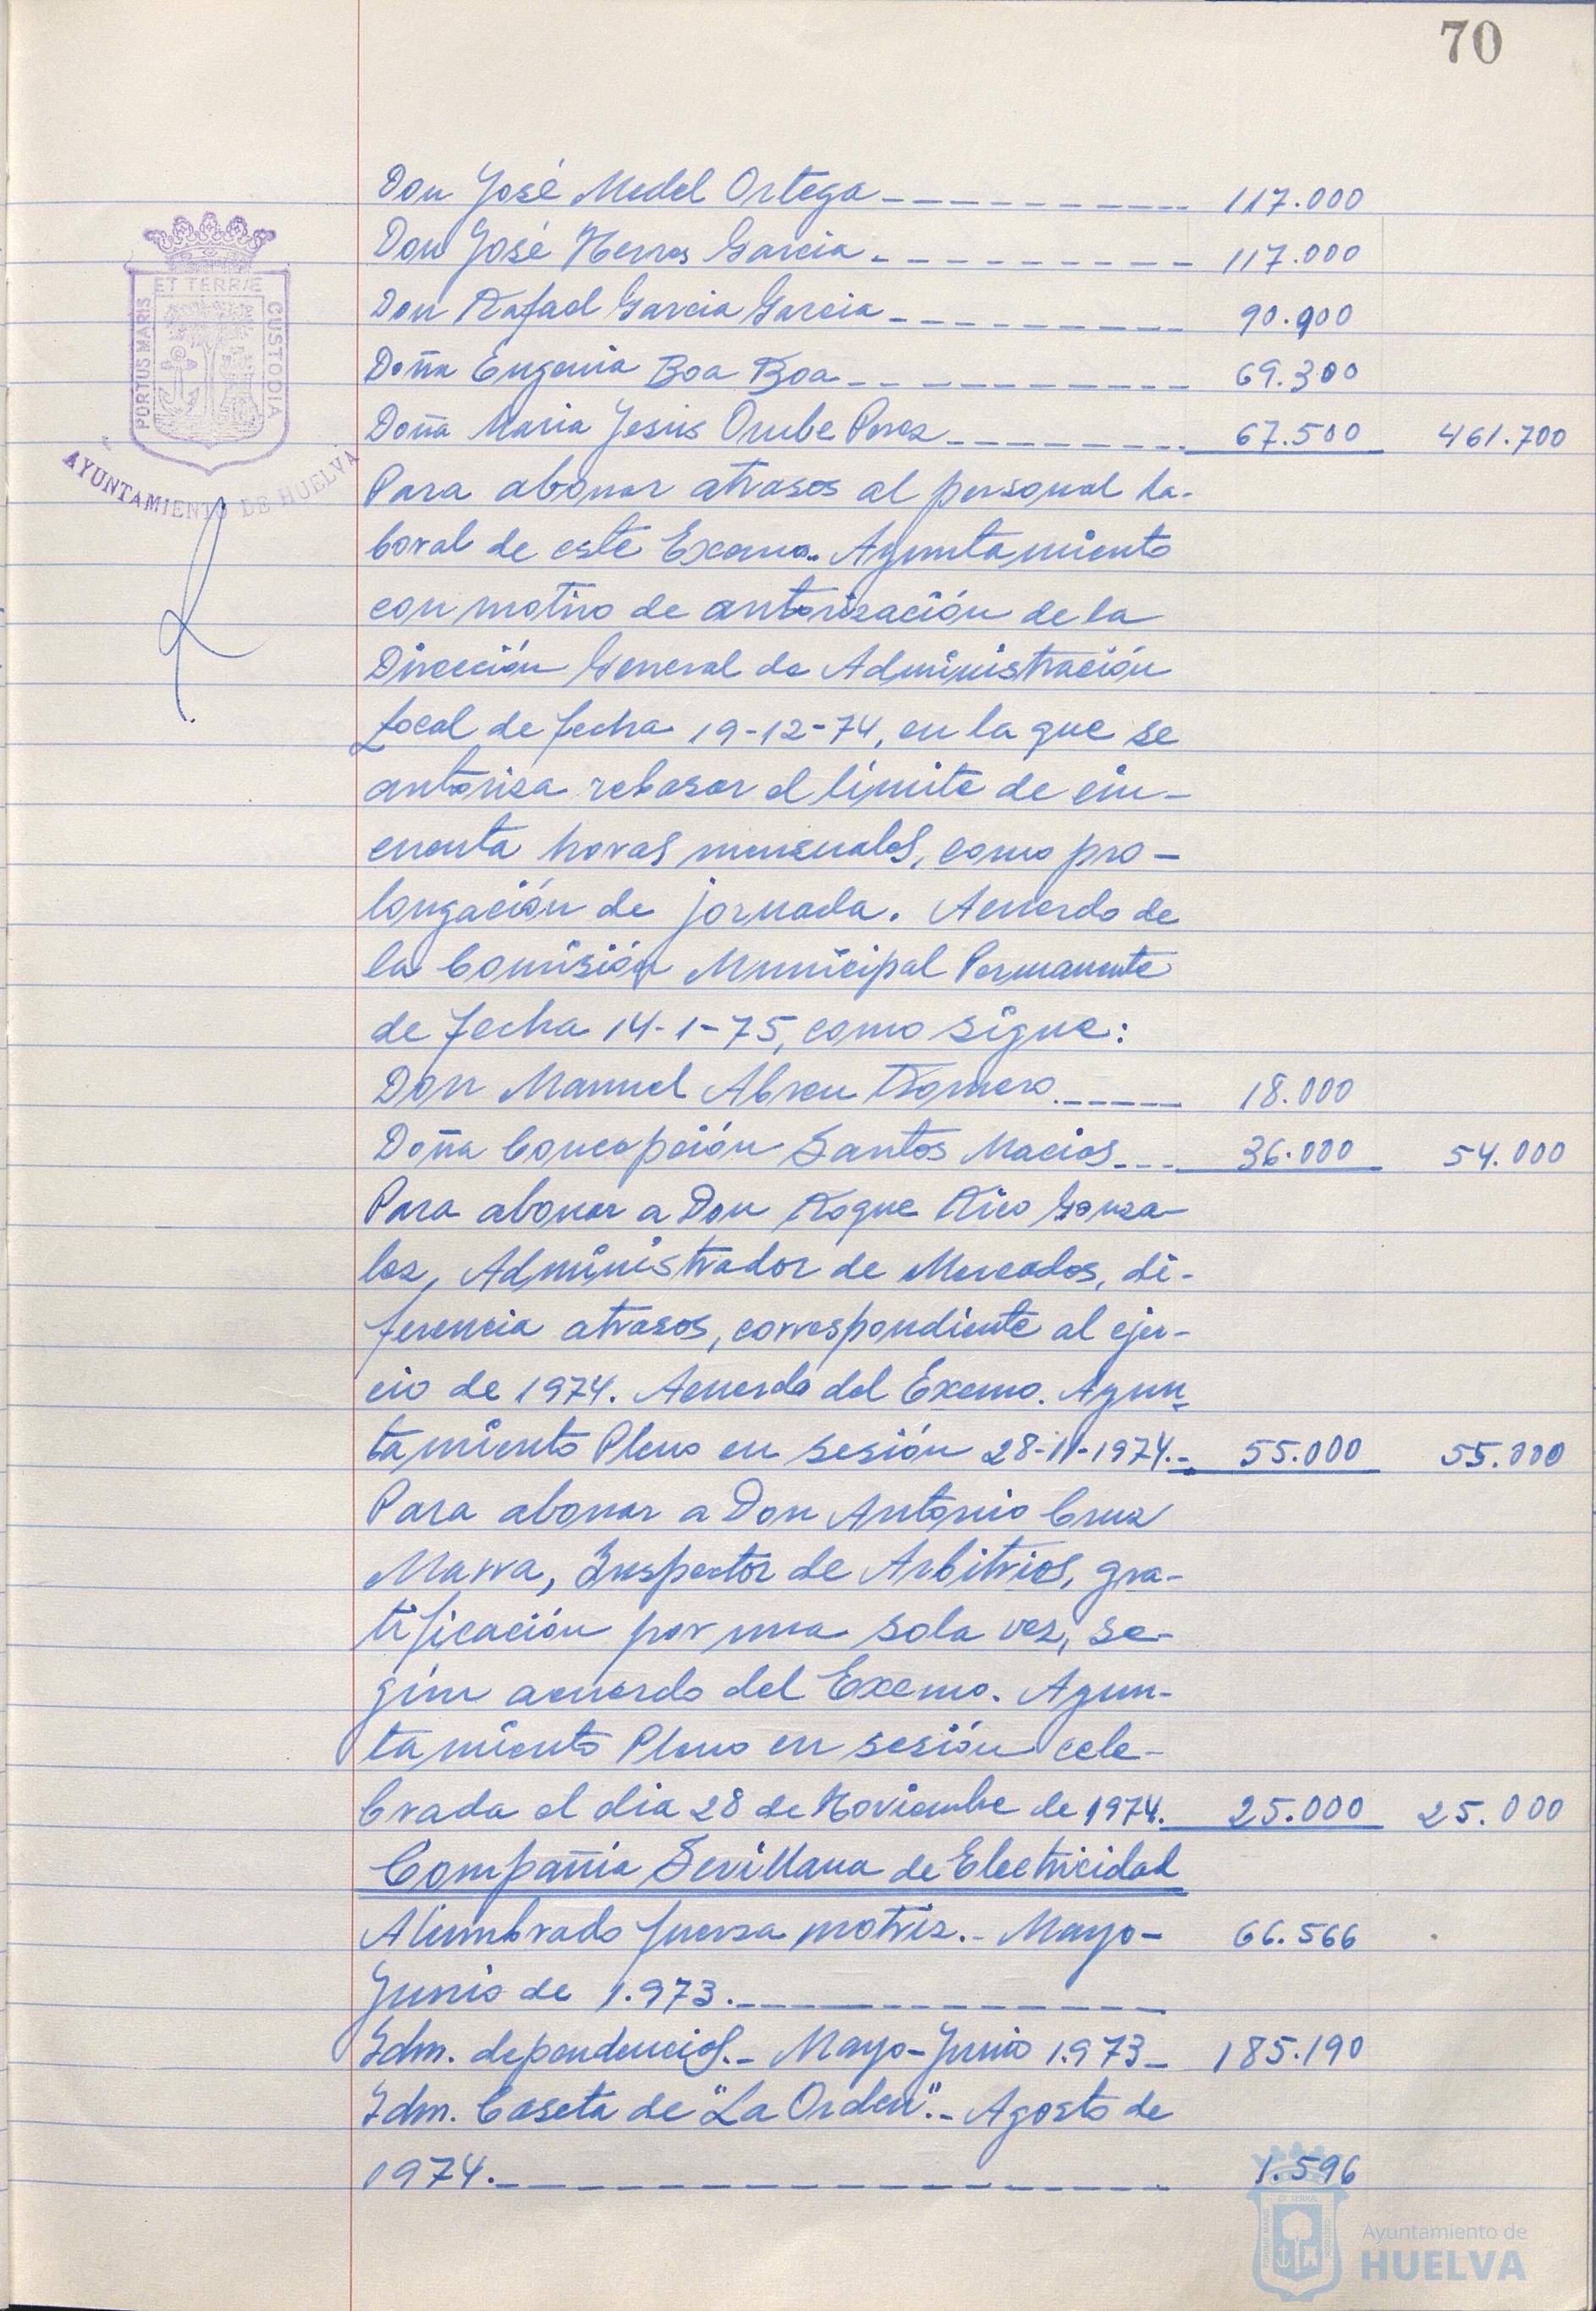 70
Don José Medel Ortega 117.000
Don José Herros Garcia 117.000
Don Rafael Garcia Garcia 90.900
Doña Eugenia Boa Boa 69.300
Doña Maria Jesús Orube Perez 67.500 461.700
Para abonar atrasos al personal la-
boral de este Excmo. Ayuntamiento
con motivo de autorización de la
Dirección General de Administración
Local de fecha 19-12-74, en la que se
autoriza rebasar el límite de cin-
cuenta horas mensuales, como pro-
longación de jornada. Acuerdo de
la Comisión Municipal Permanente
de fecha 14-1-75, como sigue:
Don Manuel Abreu Romero 18.000
Doña Concepción Santos Macias 36.000 54.000
Para abonar a Don Roque Rico Gonza-
lez, Administrador de Mercados, di-
ferencia atrasos, correspondiente al ejer-
cio de 1974. Acuerdo del Excmo. Ayun-
tamiento Pleno en sesión 28-11-1974.- 55.000 55.000
Para abonar a Don Antonio Cruz
Marra, Inspector de Arbitrios, gra-
tificación por una sola vez, se-
gún acuerdo del Excmo. Ayun-
tamiento Pleno en sesión cele-
brada el dia 28 de Noviembre de 1974. 25.000 25.000
Compañia Sevillana de Electricidad
Alumbrado fuerza motriz.- Mayo- 66.566
Junio de 1.973.
Idm. dependencias.- Mayo-Junio 1.973- 185.190
Idm. Caseta de "La Orden".- Agosto de
1974. 1.596
PORTUS MARIS ET TERRÆ CUSTODIA
AYUNTAMIENTO DE HUELVA
Ayuntamiento de
HUELVA